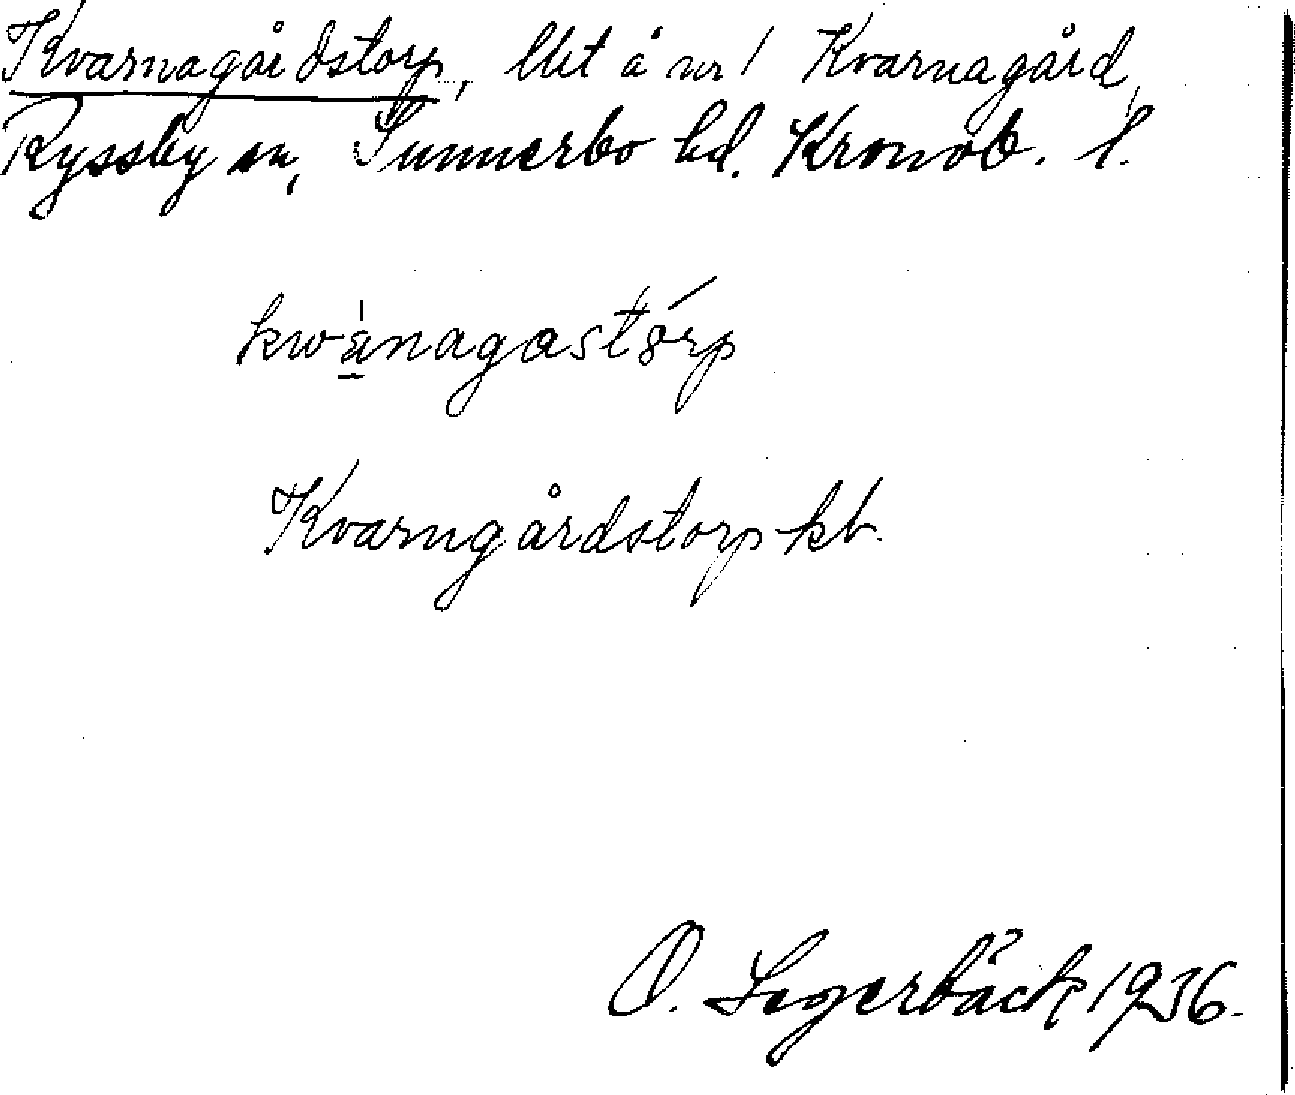 Kvarnagårdstorp, lht å nr 1 Kvarnagård,
Ryssby sn, Sunnerbo hd. Kronob. l.
kwánagastórp
Kvarngårdstorp kb.
O. Segerbäck 1936.